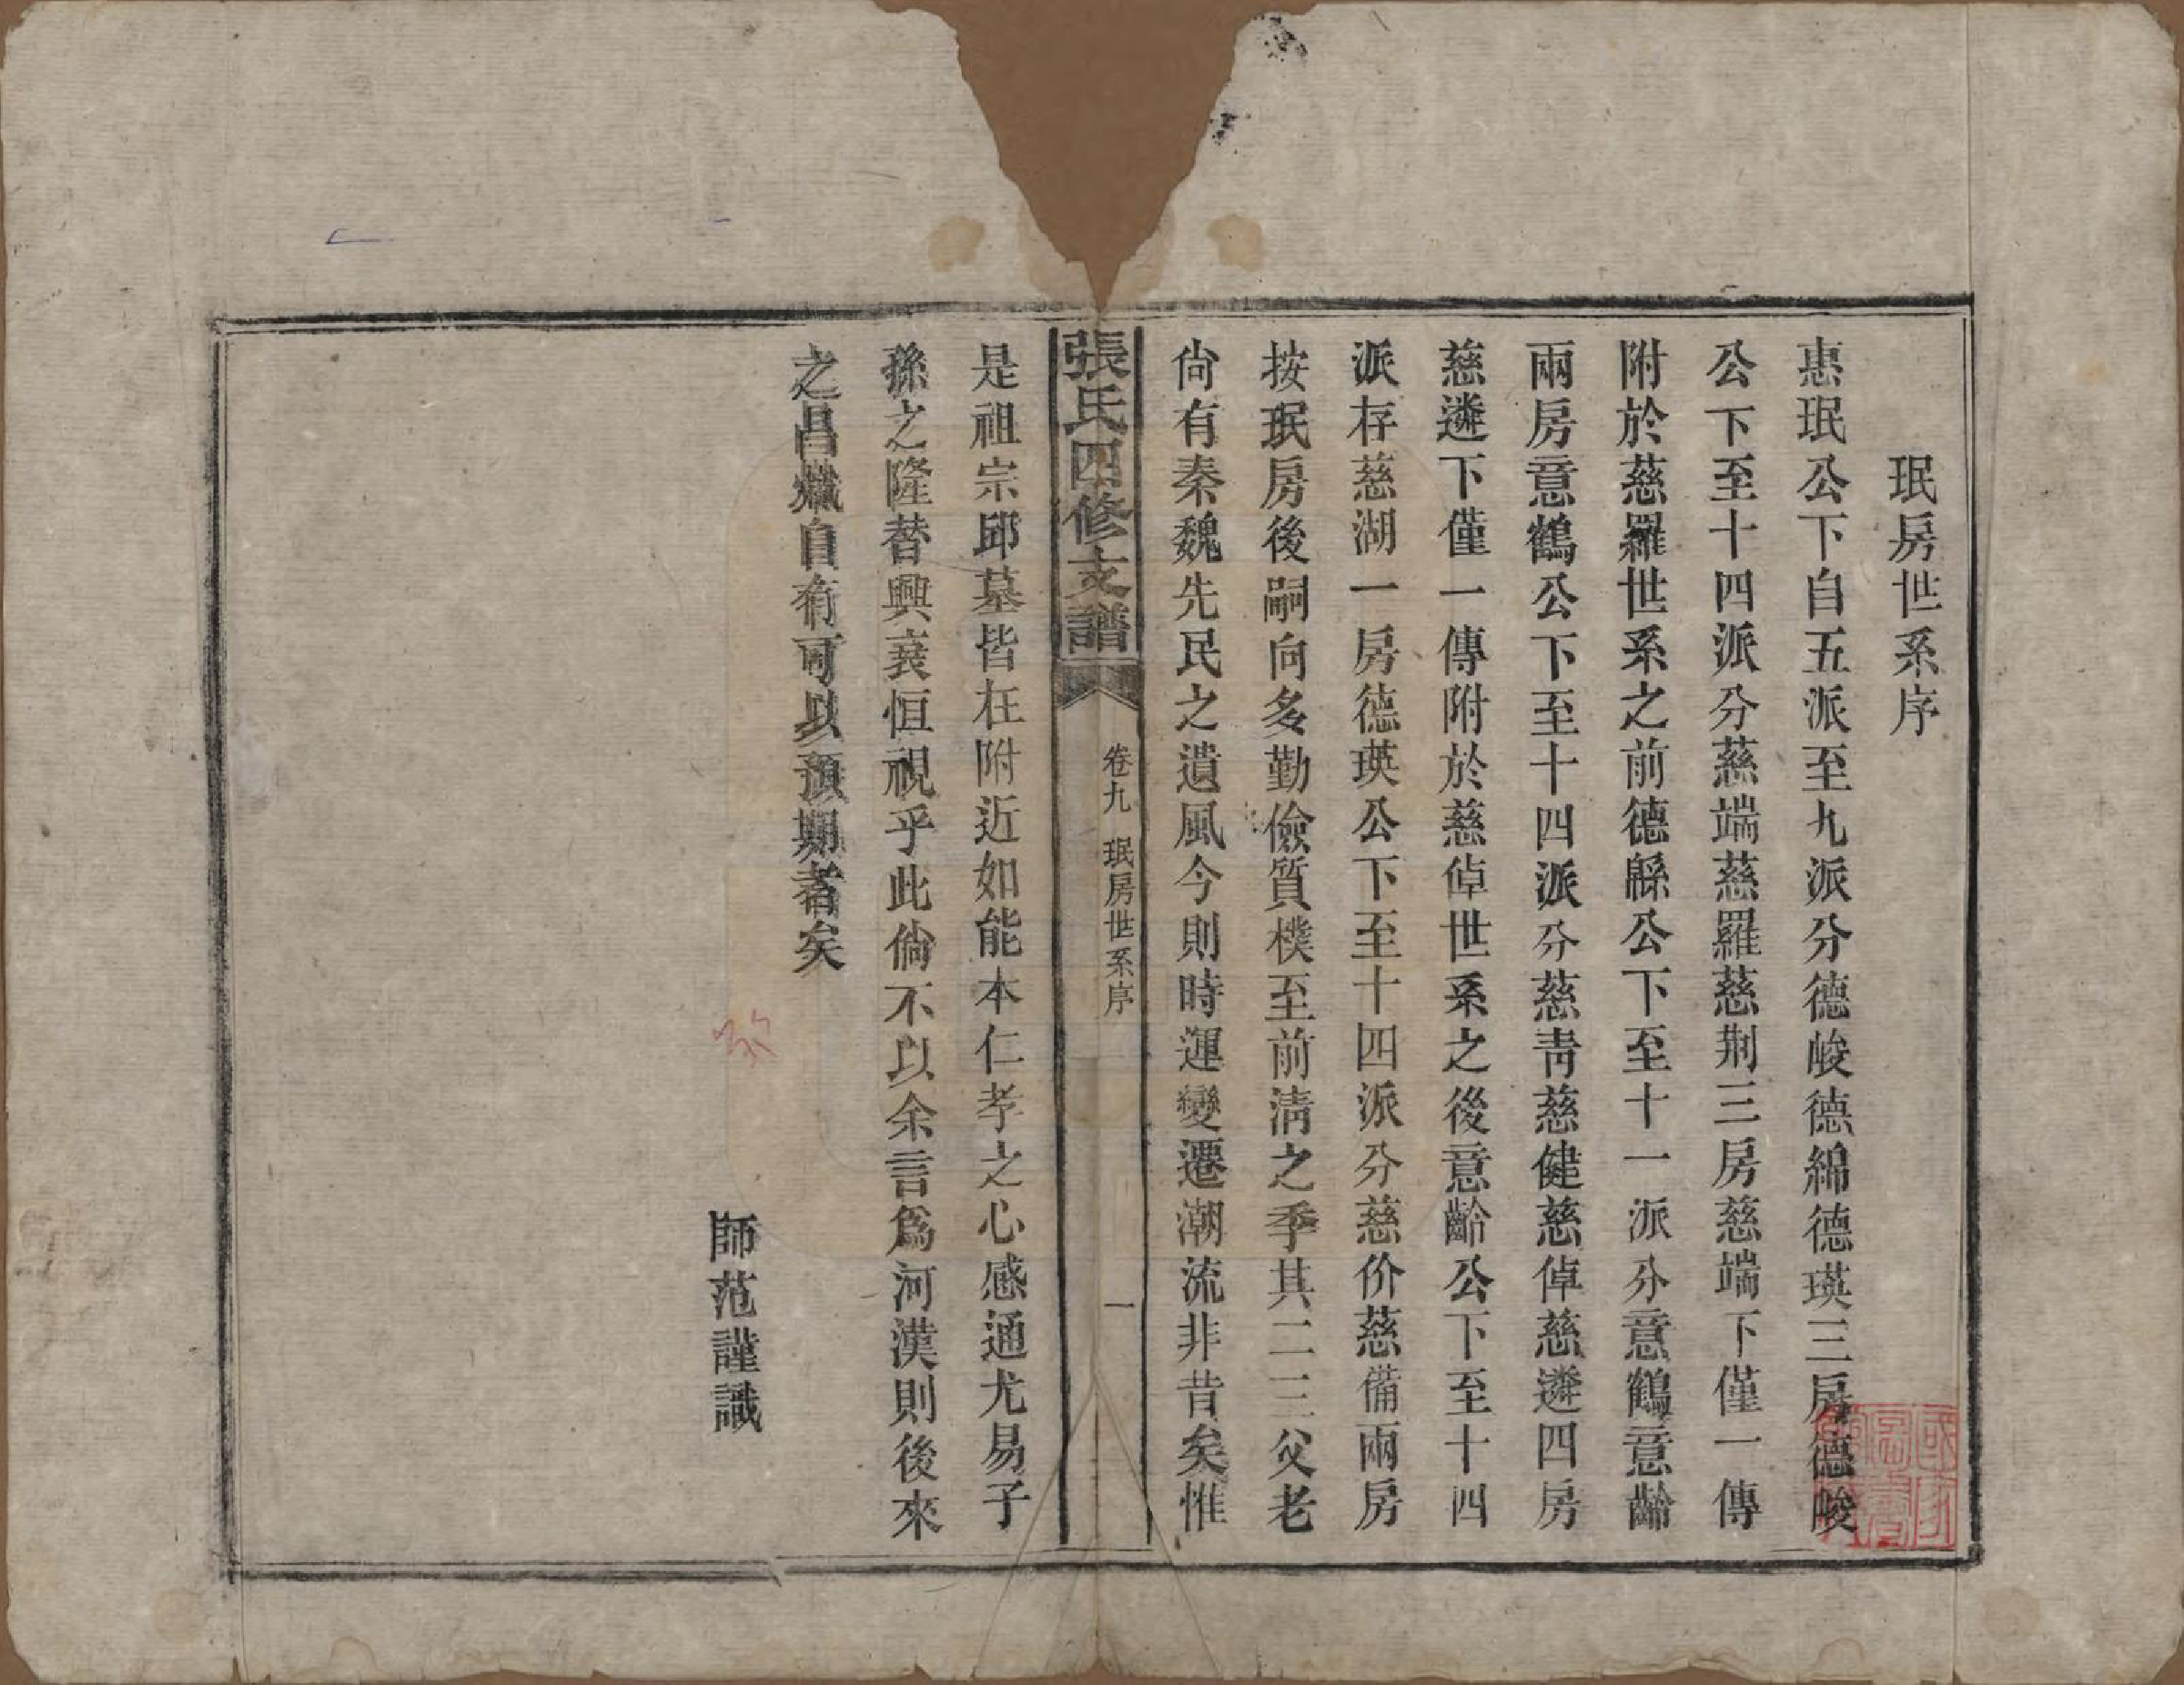 珉房世系序
惠珉公下自五派至九派分德峻德綿德瑛三房德峻
公下至十四派分慈端慈羅慈荆三房慈端下僅一傳
附於慈羅世系之前德緜公下至十一派分意鶴意齡
兩房意鶴公下至十四派分慈靑慈健慈倬慈遴四房
慈遴下僅一傳附於慈倬世系之後意齡公下至十四
派存慈湖一房德瑛公下至十四派分慈价慈備兩房
按珉房後嗣向多勤儉質樸至前淸之季其二三父老
尙有秦魏先民之遺風今則時運變遷潮流非昔矣惟
張氏四修支譜
卷九 珉房世系序
一
是祖宗邱墓皆在附近如能本仁孝之心感通尤易子
孫之隆替興衰恒視乎此倘不以余言爲河漢則後來
之昌熾自有可以預期者矣
師范謹識